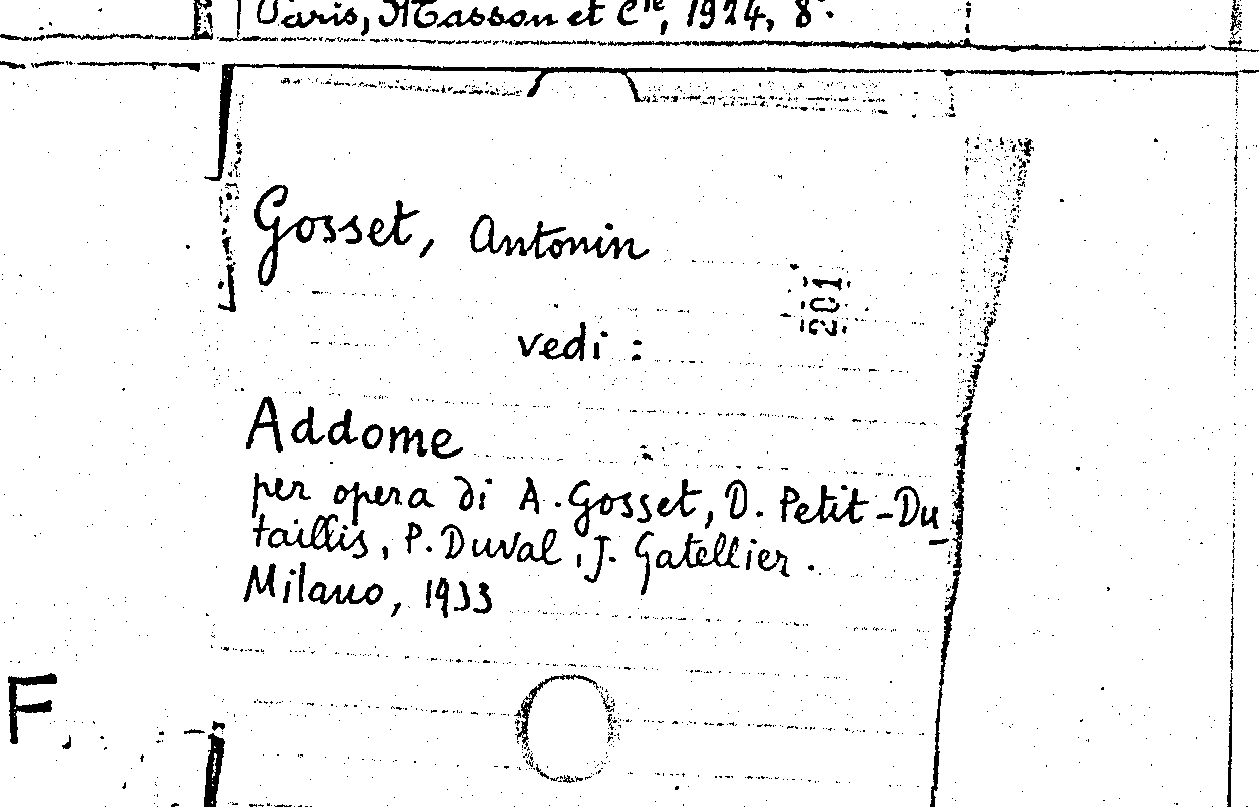 Paris, Masson et Cie, 1924, 8°.
Gosset, Antonin
201
vedi :
Addome
per opera di A. Gosset, D. Petit-Du
taillis, P. Duval, J. Gatellier.
Milano, 1933
F.